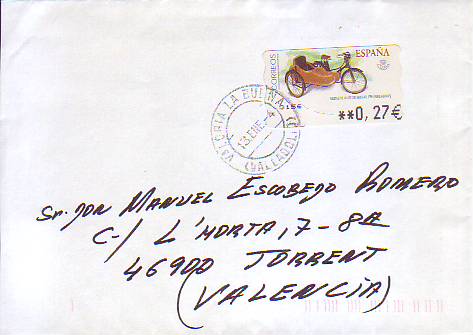 ESPAÑA
CORREOS
0156
**0,27€
VALORIA LA BUENA
13 ENE.-4
(VALLADOLID)
Sr. Don MANUEL ESCOBEJO ROMERO
C-/ L'HORTA, 7-8ª
46900 TORRENT
(VALENCIA)